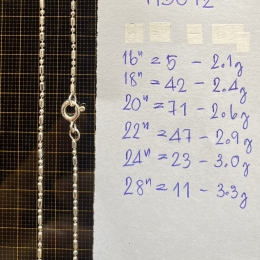 16" = 5 - 2.1g
18" = 42 - 2.4g
20" = 71 - 2.6g
22" = 47 - 2.9g
24" = 23 - 3.0g
28" = 11 - 3.3g